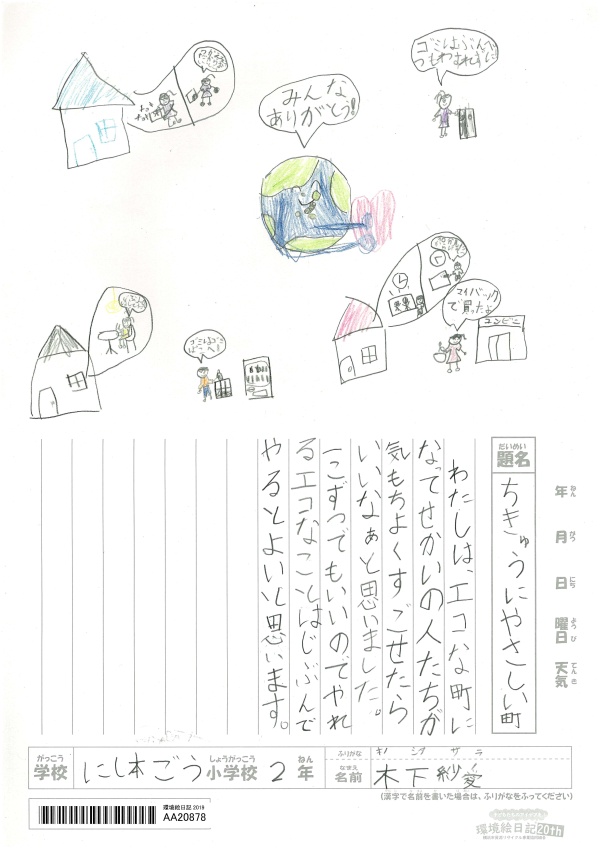 みんな
ありがとう!
ゴミはぶんべつ
マイバック
で買ったよ
コンビニ
ゴミはゴミ
ばこへ!
だいめい
題名
ちきゅうにやさしい町
ねん
年
がつ
月
にち
日
ようび
曜日
てんき
天気
わたしは、エコな町に
なってせかいの人たちが
気もちよくすごせたら
いいなぁと思いました。
一こずつでもいいのでやれ
るエコなことはじぶんで
やるとよいと思います。
がっこう
学校
にし本ごう
しょうがっこう
小学校
2
ねん
年
ふりがな
キノシタ サラ
なまえ
名前
木下 紗愛
(漢字で名前を書いた場合は、ふりがなをふってください)
環境絵日記 2019
AA20878
環境絵日記20th